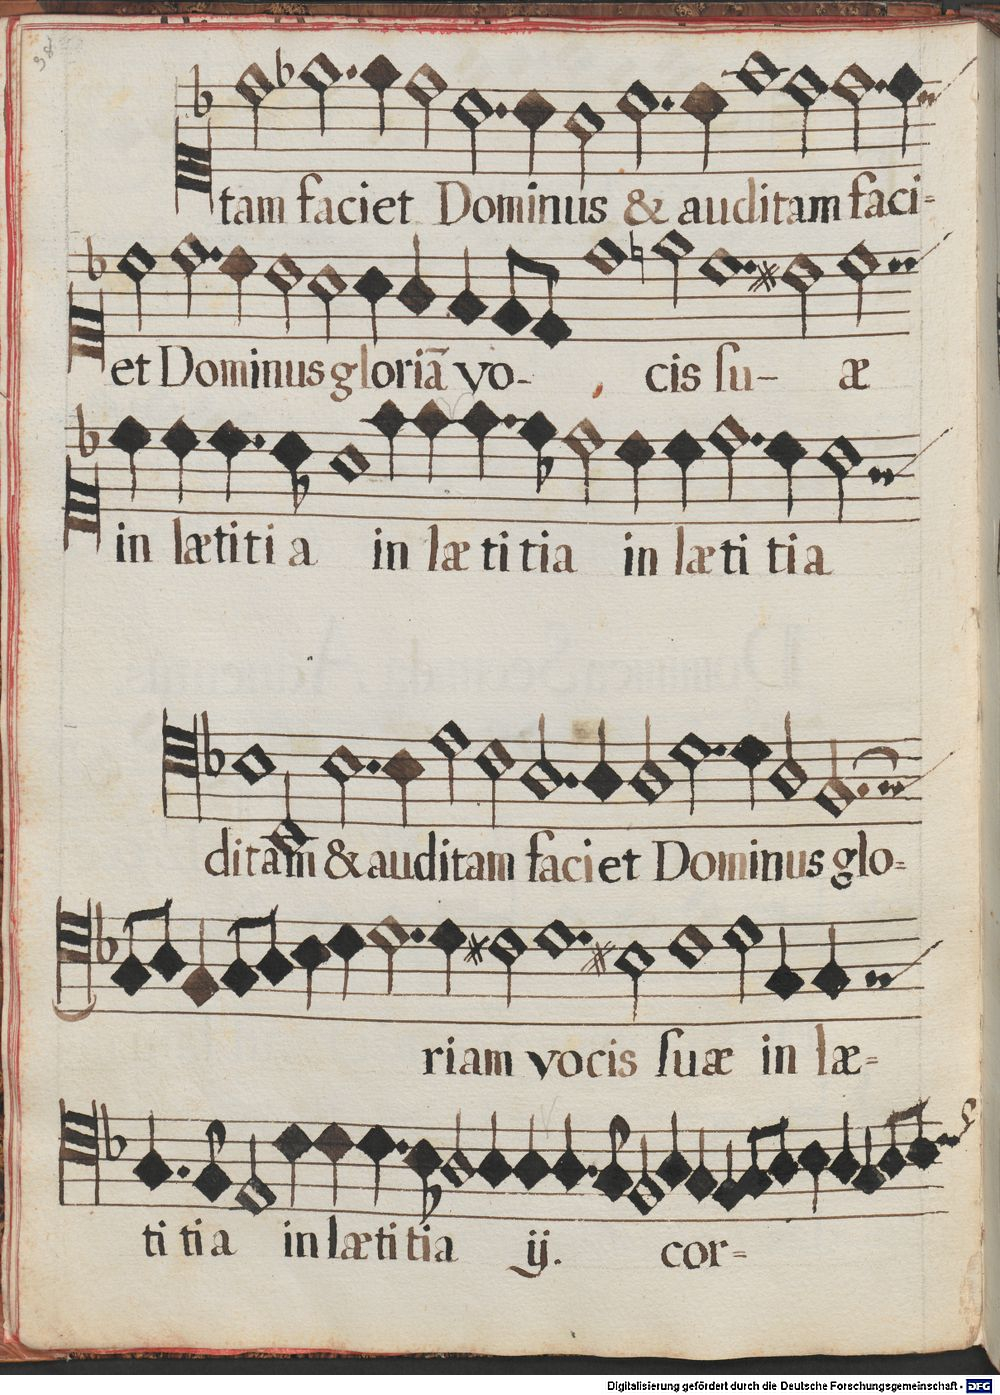 98
tam faciet Dominus & auditam faci=
et Dominus gloriã vo- cis su- æ
in lætitia in lætitia in lætitia
ditam & auditam faciet Dominus glo=
riam vocis suæ in læ=
titia in lætitia ij. cor=
Digitalisierung gefördert durch die Deutsche Forschungsgemeinschaft - DFG